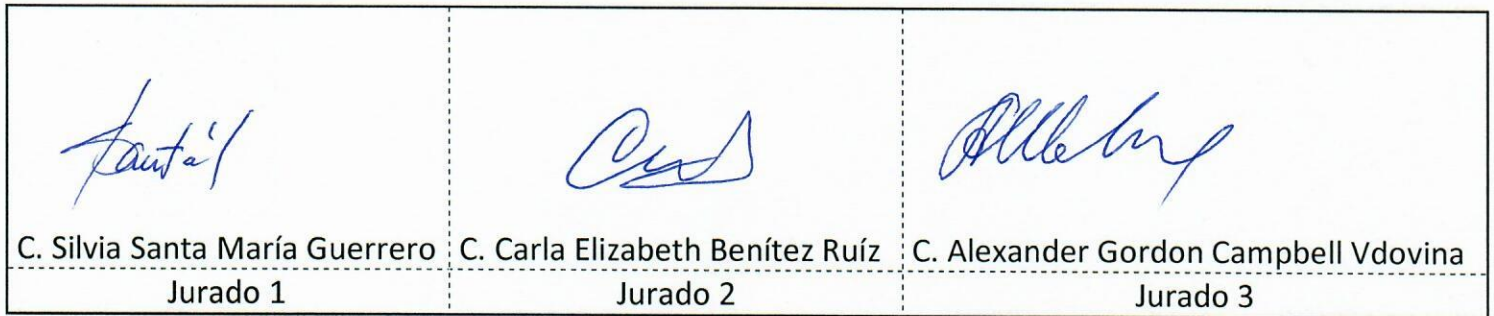 C. Silvia Santa María Guerrero
C. Carla Elizabeth Benítez Ruíz
C. Alexander Gordon Campbell Vdovina
Jurado 1
Jurado 2
Jurado 3